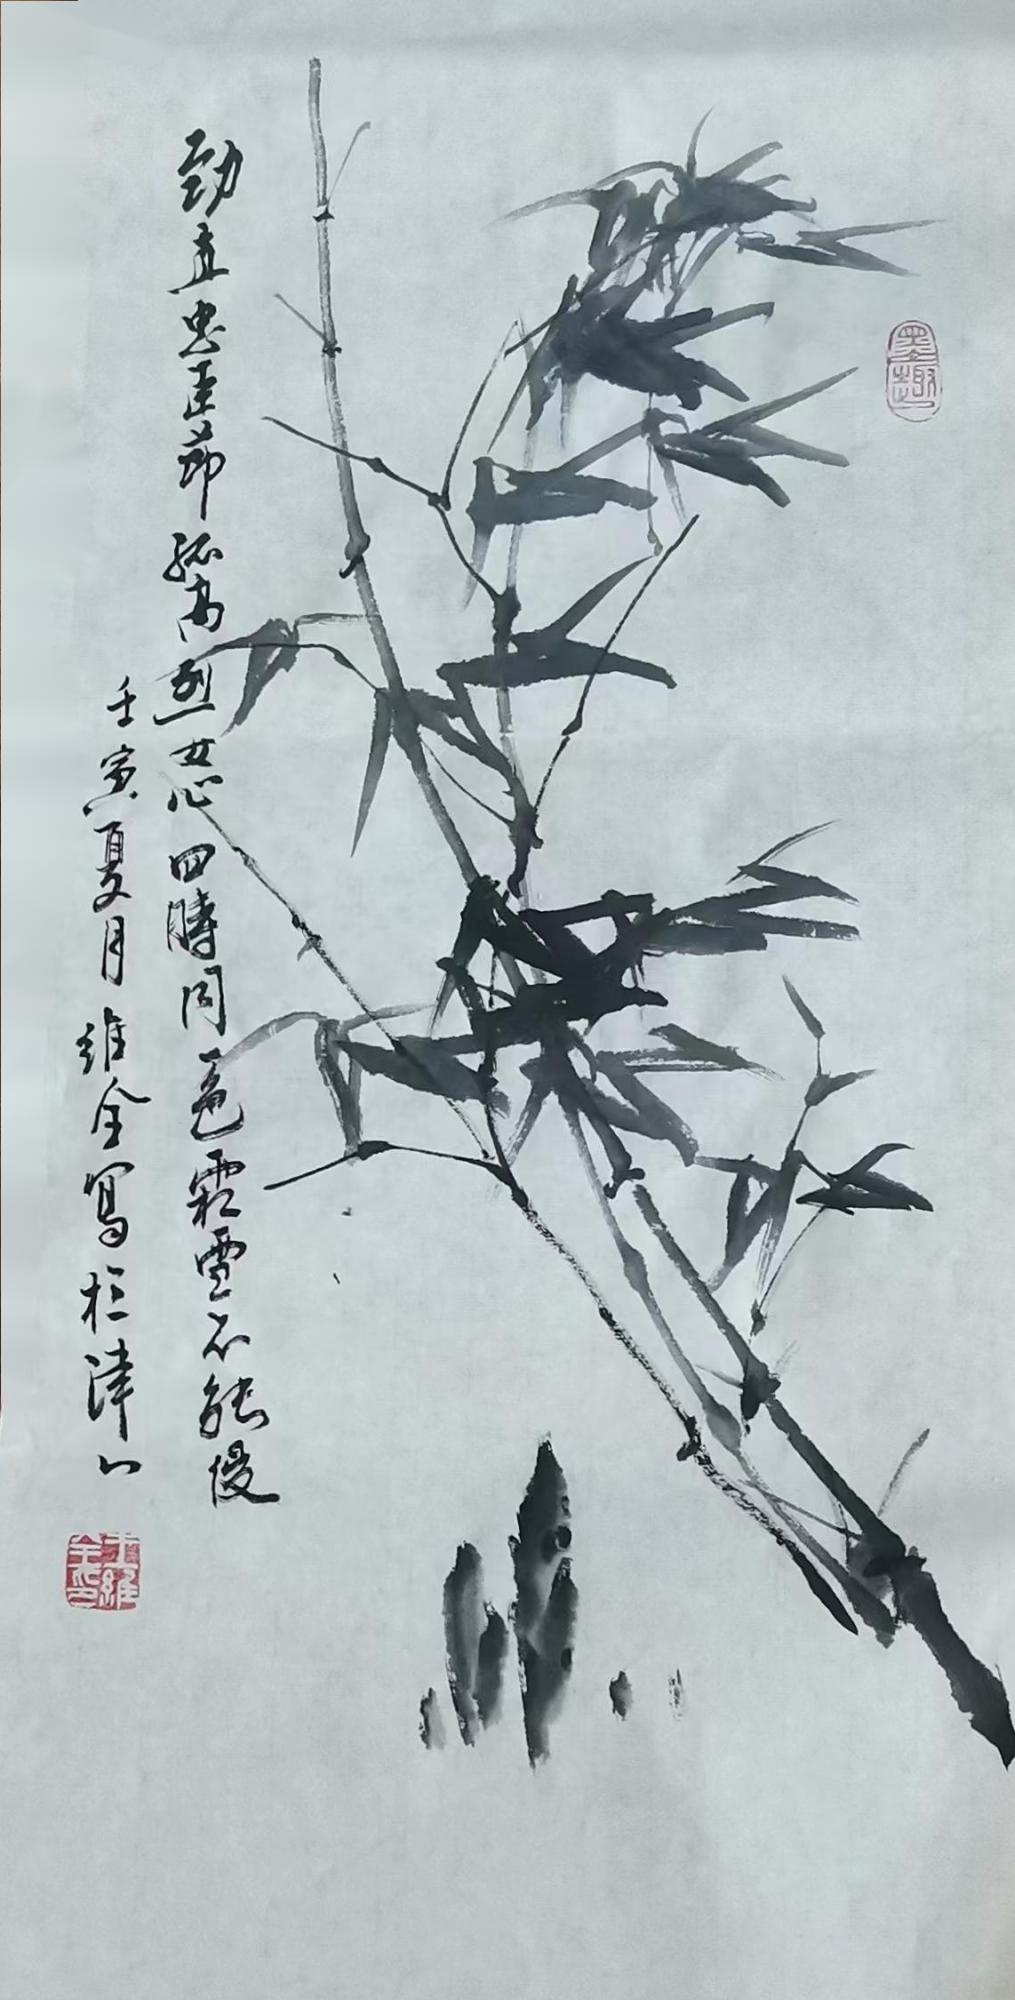 劲直忠臣節孤高烈女心四時同一色霜雪不能侵
壬寅夏月維全寫於津門
墨趣
王維全印